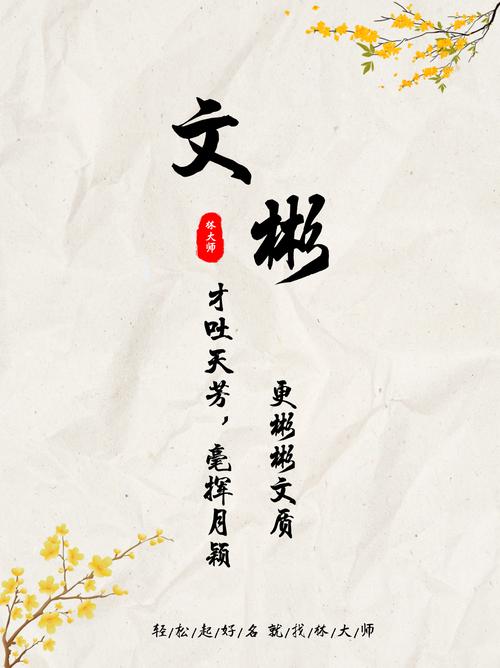 文彬
林大师
才吐天芳，毫挥月颖
更彬彬文质
轻/松/起/好/名 就/找/林/大/师